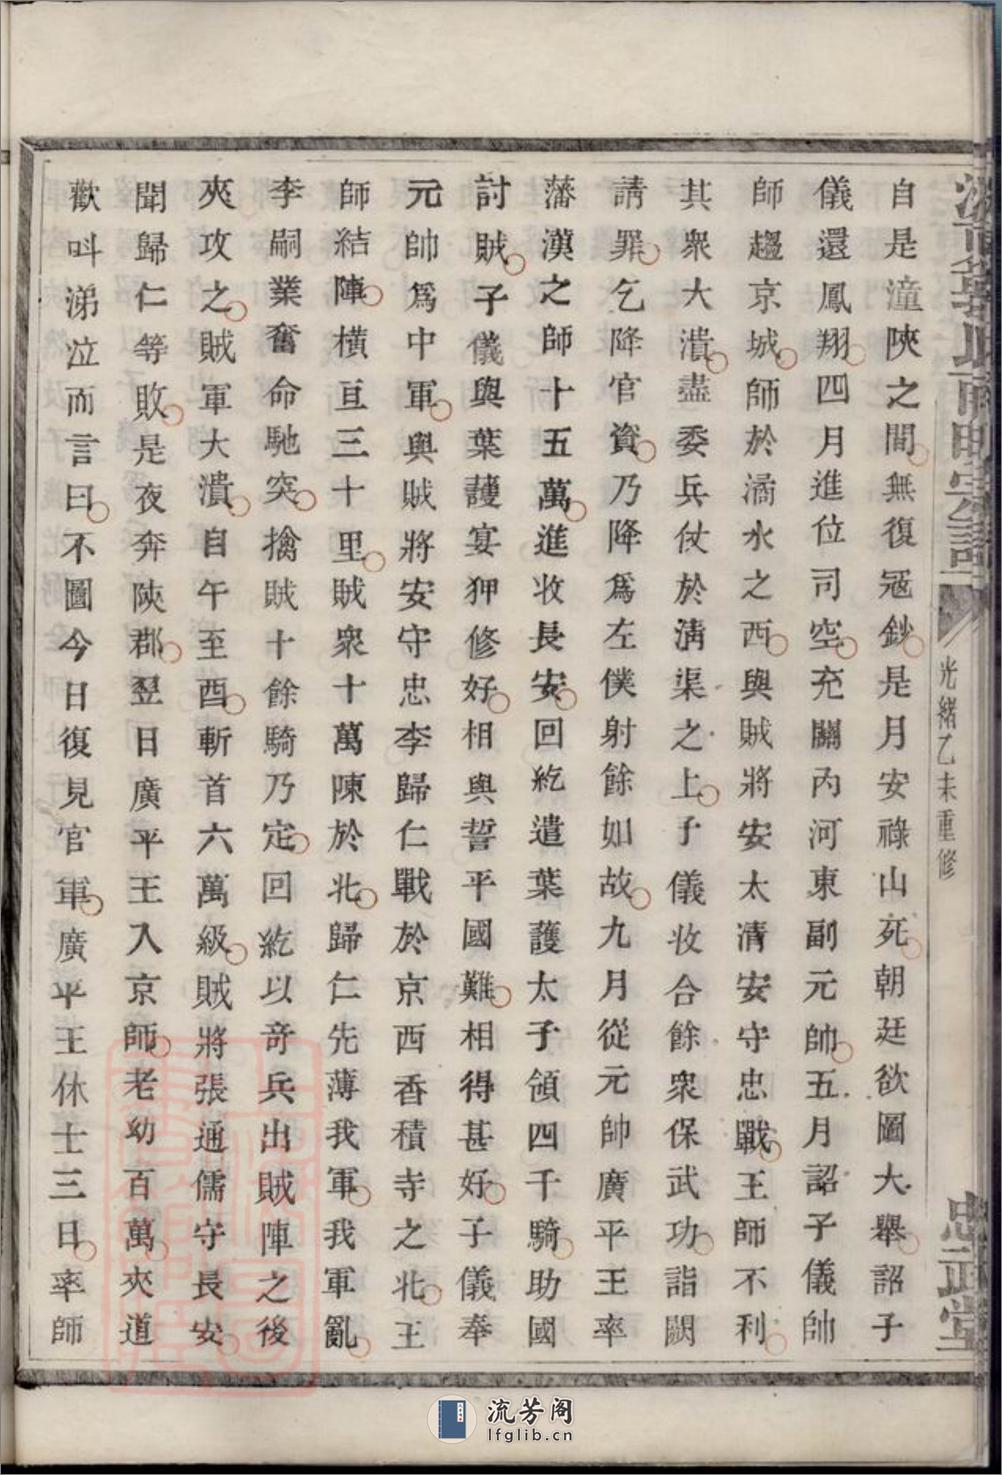 光緒乙未重修
忠武堂
自是潼陝之間無復冦鈔是月安祿山死朝廷欲圖大舉詔子
儀還鳳翔四月進位司空充關內河東副元帥五月詔子儀帥
師趨京城師於潏水之西與賊將安太清安守忠戰王師不利
其衆大潰盡委兵仗於清渠之上子儀收合餘衆保武功詣闕
請罪乞降官資乃降爲左僕射餘如故九月從元帥廣平王率
藩漢之師十五萬進收長安回紇遣葉護太子領四千騎助國
討賊子儀與葉護宴狎修好相與誓平國難相得甚好子儀奉
元帥爲中軍與賊將安守忠李歸仁戰於京西香積寺之北王
師結陣橫亘三十里賊衆十萬陳於北歸仁先薄我軍我軍亂
李嗣業奮命馳突擒賊十餘騎乃定回紇以奇兵出賊陣之後
夾攻之賊軍大潰自午至酉斬首六萬級賊將張通儒守長安
聞歸仁等敗是夜奔陝郡翌日廣平王入京師老幼百萬夾道
歡叫涕泣而言曰不圖今日復見官軍廣平王休士三日率師
流芳阁
lfglib.cn